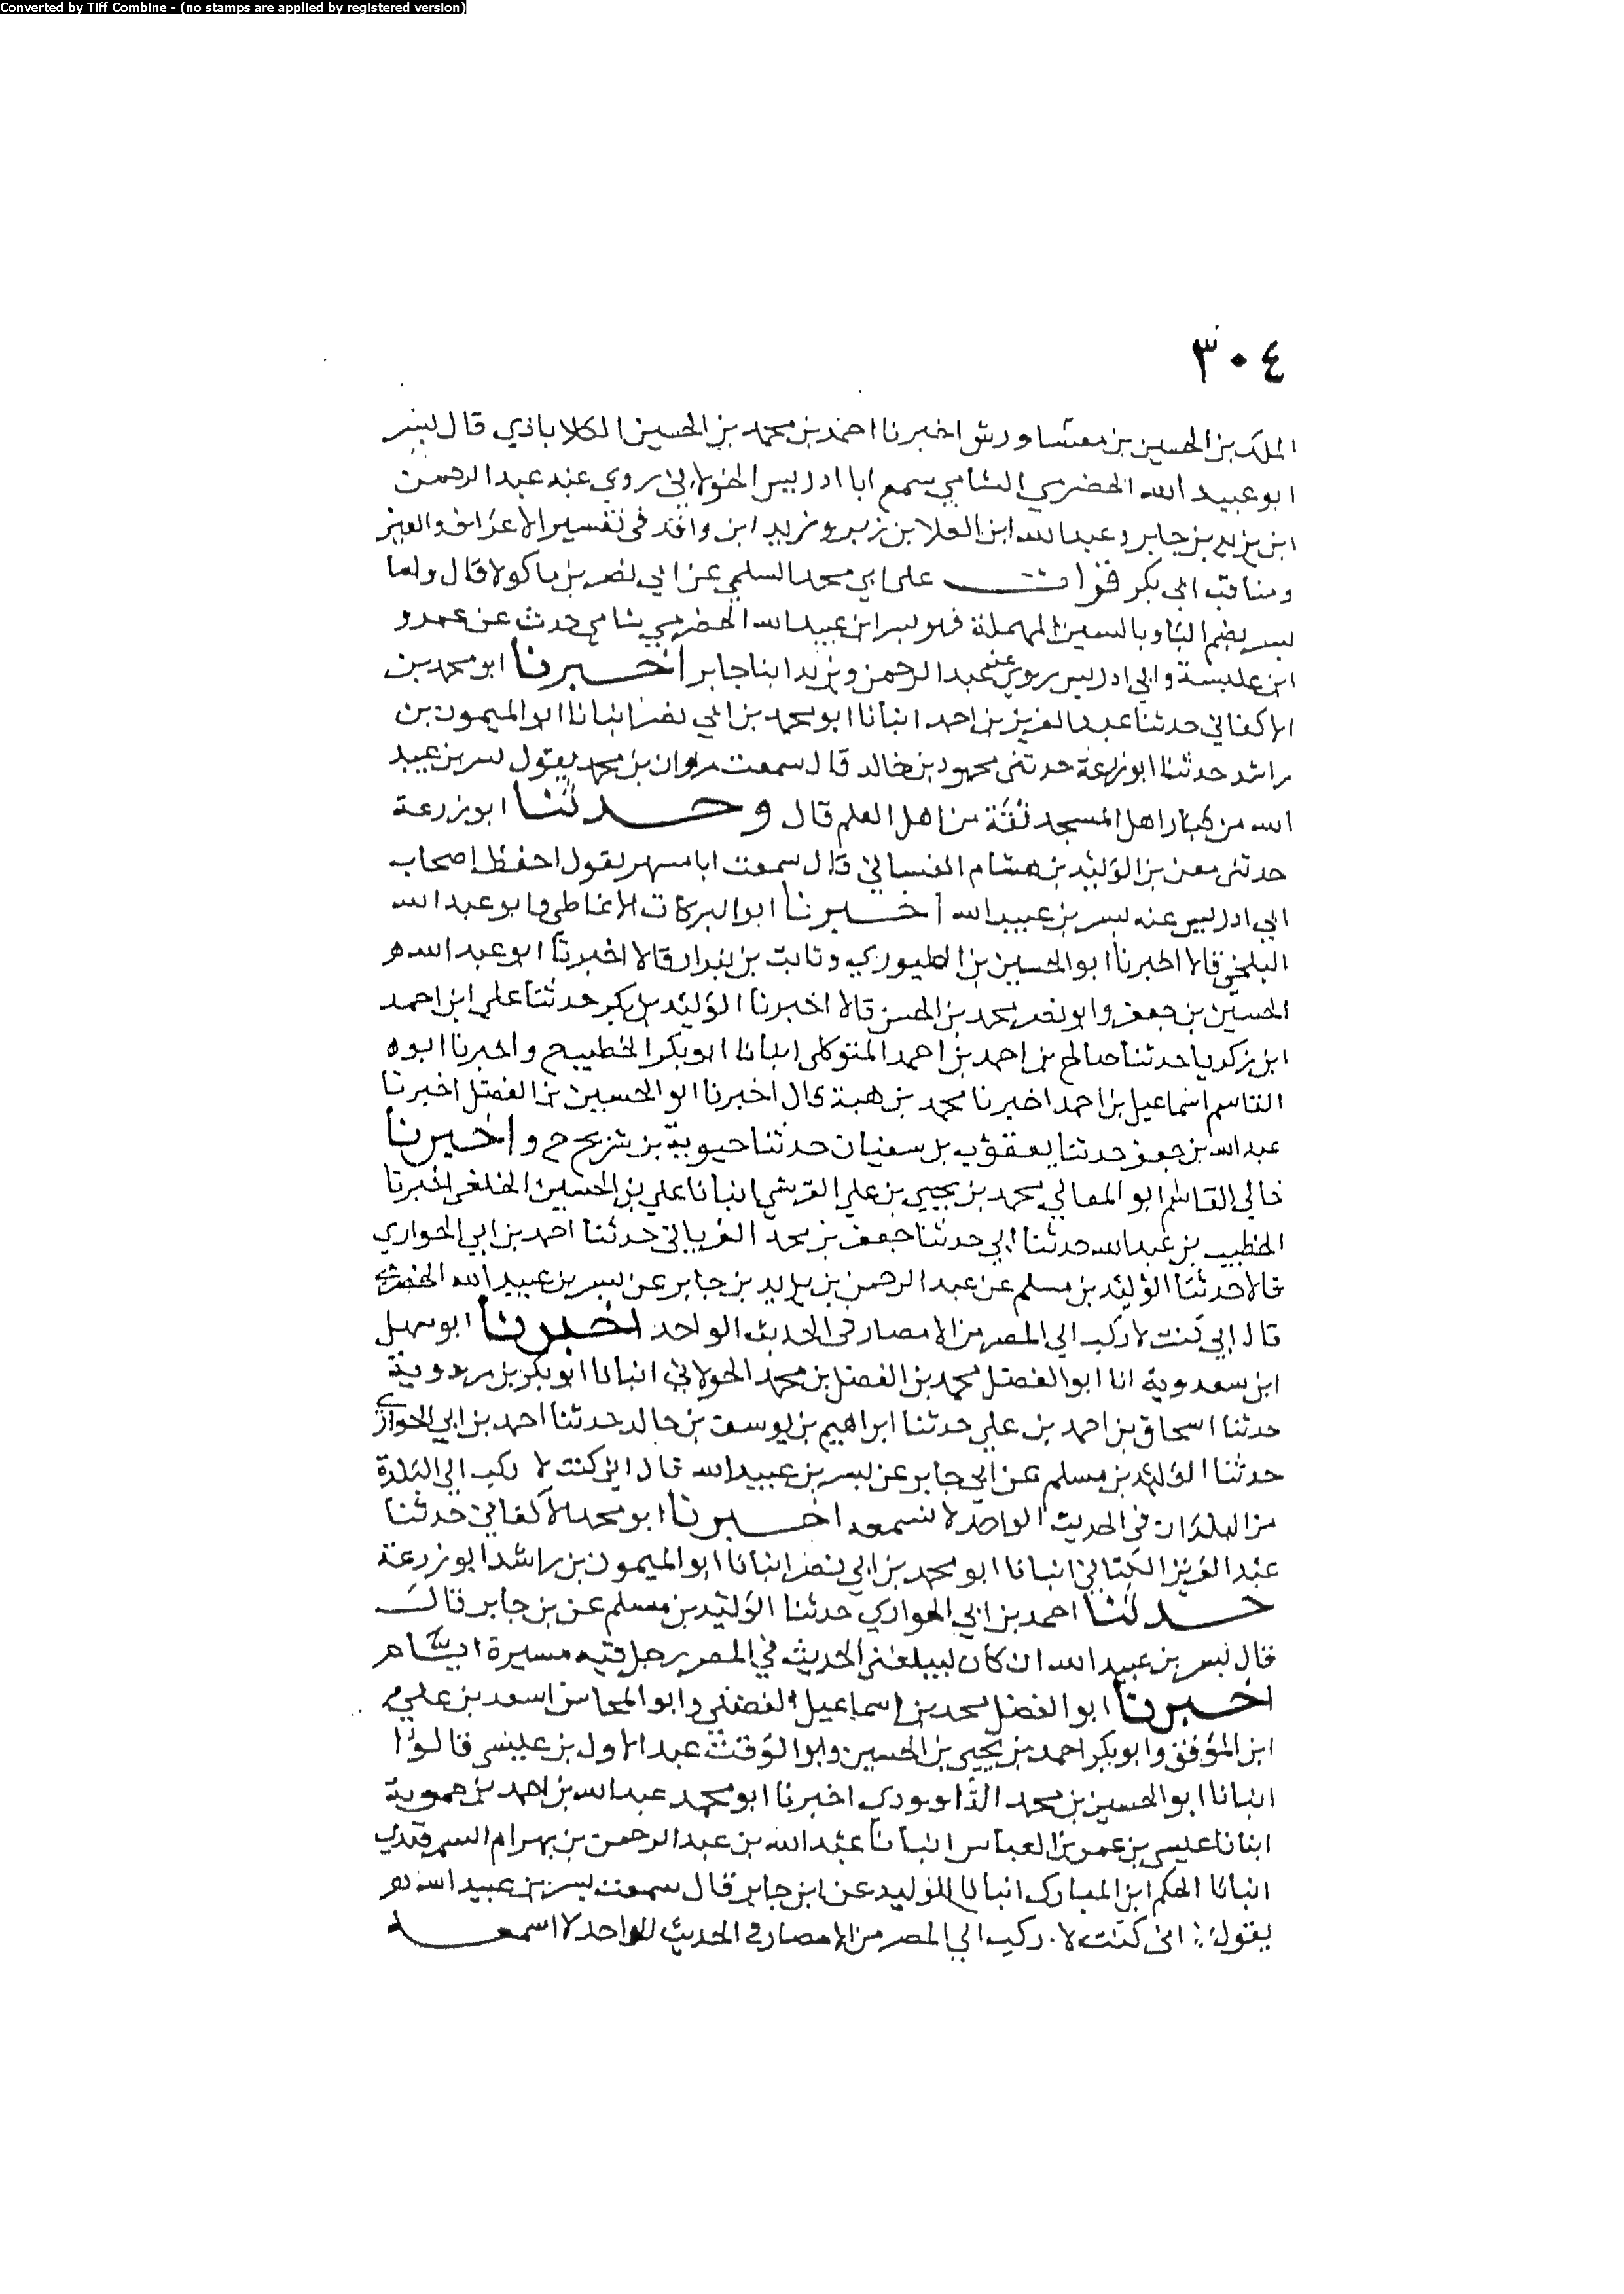 Converted by Tiff Combine - (no stamps are applied by registered version)
٣٠٤
الملك بن الحسين بن اخبرنا احمد بن محمد بن الحسين الكلاباذي قال بسر
ابو عبيد الله الحضرمي الشامي سمع ابا ادريس الخولاني روي عنه عبد الرحمن
ابن يزيد بن جابر وعبد الله ابن العلا بن زبر وزيد ابن واقد في تفسير الاعراف والعبر
ومناقب ابي بكر قرات على ابي محمد السلمي عن ابي نصر بن ماكولا قال واما
بسر بضم البا وبالسين المهملة فهو بسر ابن عبيد الله الحضرمي شامي حدث عن عمرو
ابن عبسة وابي ادريس روي عنه عبد الرحمن ويزيد ابنا جابر اخبرنا ابو محمد بن
الاكفاني حدثنا عبد العزيز بن احمد انبانا ابو محمد بن ابي نصر انبانا ابو الميمون بن
راشد حدثنا ابو زرعة حدثني محمود بن خالد قال سمعت مروان بن محمد يقول بسر بن عبيد
الله من كبار اهل المسجد ثقة من اهل العلم قال وحدثنا ابو زرعة
حدثني معن بن الوليد بن هشام الغساني قال سمعت ابا مسهر يقول احفظ اصحاب
ابي ادريس عنه بسر بن عبيد الله اخبرنا ابو البركات الانماطي وابو عبد الله
البلخي قالا اخبرنا ابو الحسين بن الطيوري وثابت بن بندار قالا اخبرنا ابو عبد الله
الحسين بن جعفر وابو نصر محمد بن الحسن قالا اخبرنا الوليد بن بكر حدثنا علي ابن احمد
ابن زكريا حدثنا صالح بن احمد بن احمد المتوكلى انبانا ابو بكر الخطيب ح واخبرنا ابو
القاسم اسماعيل بن احمد اخبرنا محمد بن هبة قال اخبرنا ابو الحسين بن الفضل اخبرنا
عبد الله بن جعفر حدثنا يعقوب بن سفيان حدثنا حيوية بن شريح ح واخبرنا
خالي القاسم ابو المعالي محمد بن يحيي بن علي القرشي انبانا علي بن الحسين الخلعي اخبرنا
الخطيب بن عبد الله حدثنا ابي حدثنا جعفر بن محمد الفريابي حدثنا احمد بن ابي الحواري
قالا حدثنا الوليد بن مسلم عن عبد الرحمن بن يزيد بن جابر عن بسر بن عبيد الله الحضرمي
قال ابي كنت لاركب الي المصر من الامصار في الحديث الواحد اخبرنا ابو سهل
ابن سعدوية انا ابو الفضل محمد بن الفضل بن محمد الحولاني انبانا ابو بكر بن مردوية
حدثنا اسحاق بن احمد بن علي حدثنا ابراهيم بن يوسف بن خالد حدثنا احمد بن ابي الحواري
حدثنا الوليد بن مسلم عن ابي جابر عن بسر بن عبيد الله قال اني كنت لا ركب الي البلدة
من البلدان في الحديث الواحد لاسمعه اخبرنا ابو محمد الاكفاني حدثنا
عبد العزيز الكتاني انبانا ابو محمد بن ابي نصر انبانا ابو الميمون بن راشد ابو زرعة
حدثنا احمد بن ابي الحواري حدثنا الوليد بن مسلم عن بن جابر قال
قال بسر بن عبيد الله ان كان ليبلغني الحديث في المصر رجل فيه مسيرة ايام
اخبرنا ابو الفضل محمد بن اسماعيل الفضيلي وابو المحاسن اسعد بن علي
ابن الموفق وابو بكر احمد بن يحيي بن الحسين وابو الوقت عبد الاول بن عيسى قالوا
انبانا ابو الحسين بن محمد الداوودي اخبرنا ابو محمد عبد الله بن احمد بن حموية
انبانا عيسى بن عمر بن العباس انبانا عبد الله بن عبد الرحمن بن بهرام السمرقندي
انبانا الحكم ابن المبارك انبانا الوليد عن ابن جابر قال سمعت بسر بن عبيد الله
يقول: انى كنت لا ركب الي المصر من الامصار في الحديث الواحد لا اسمعه